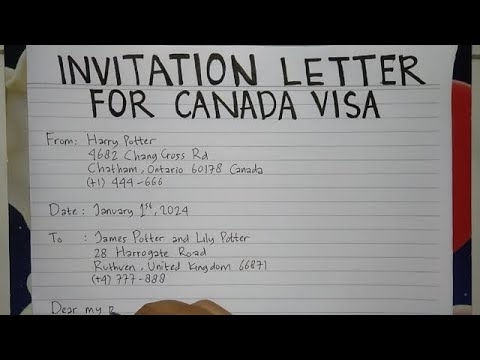 INVITATION LETTER
FOR CANADA VISA
From: Harry Potter
4682 Chang Cross Rd
Chatham, Ontario 60178 Canada
(+1) 444-666
Date : January 1st, 2024
To : James Potter and Lily Potter
28 Harrogate Road
Ruthven, United Kingdom 66871
(+4) 777-888
Dear my